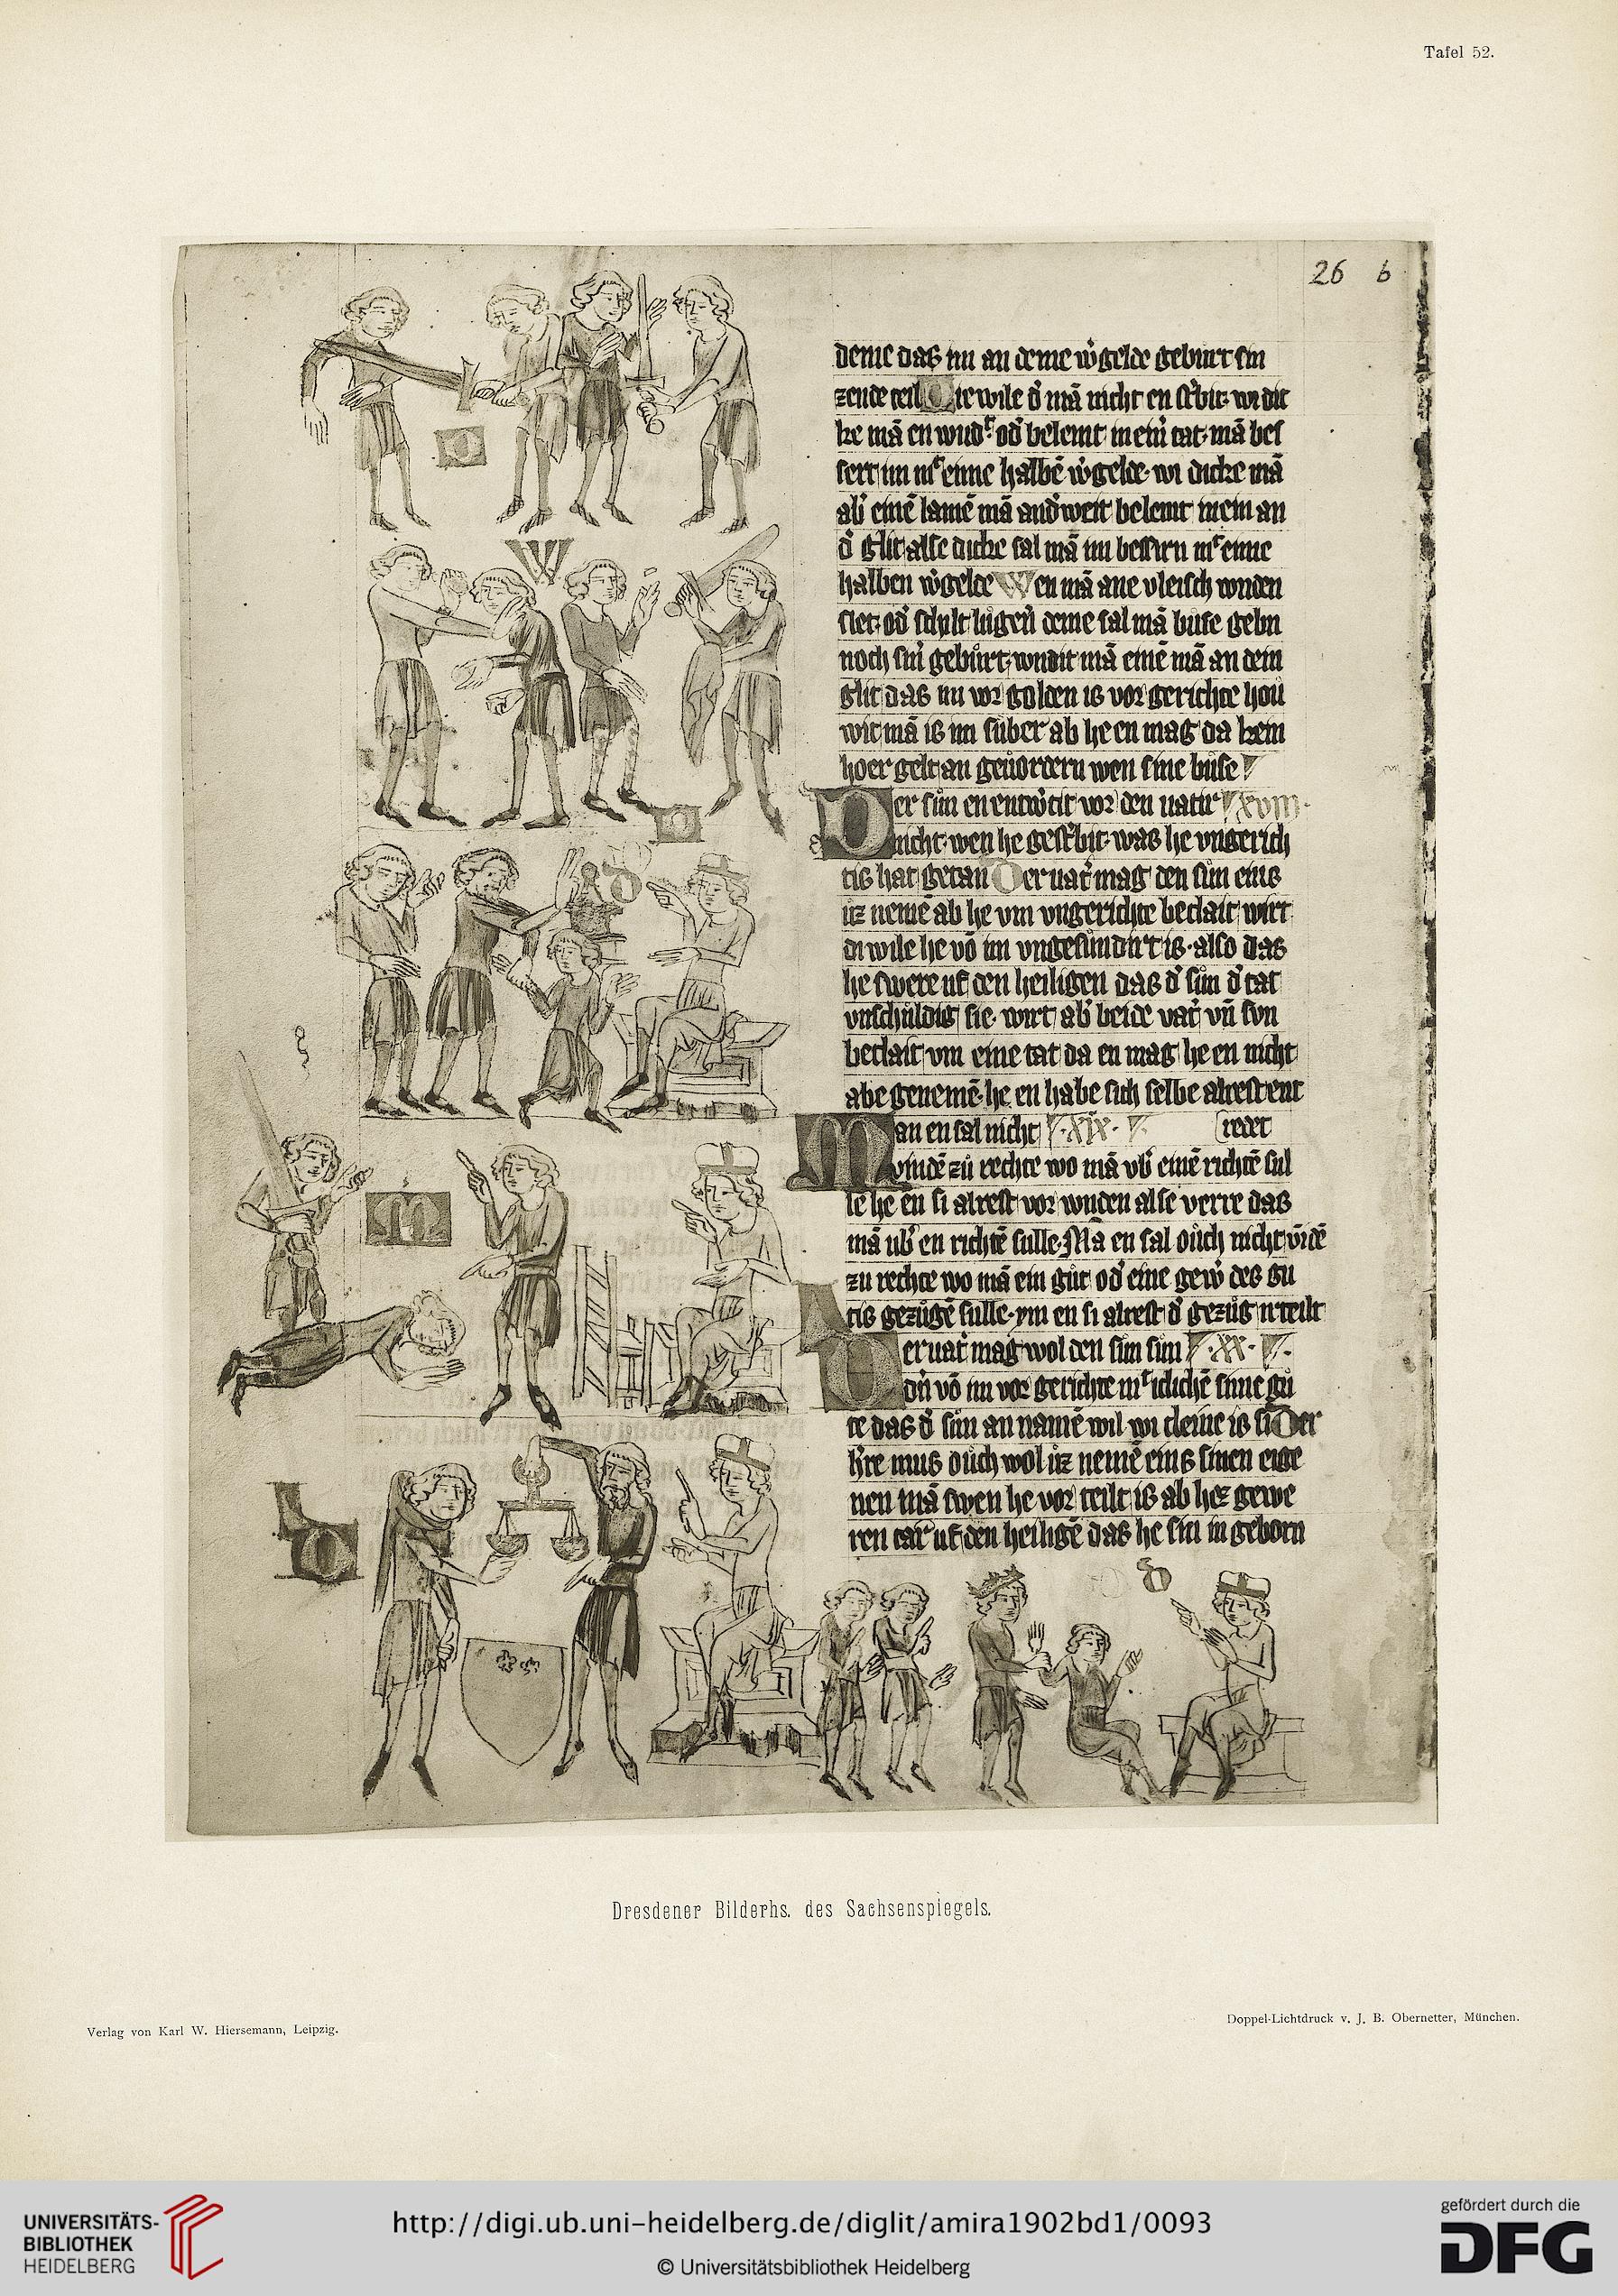 Tafel 52.
26 b
deme das im an deme w'gelde geburt sin
zende teil Diewile d' mā nicht en st'bit wi dic
ke mā en wūd't od' belemt in ein' tat mā bes
sert im m't eime halbē w'gelde wi dicke mā
ab' einē lamē mā and'weit belemt in ein an
d' glit alse dicke sal mā im bessirn m't eime
halben w'gelde Wen mā ane vleisch wnden
slet od' schilt lůgen' deme sal mā bůse gebn
noch sin' gebůrt wndit mā einē mā an dem
glit das im vor golden is vor gerichte hou
wit mā is im sůber ab he en mag da kein
hoer gelt an gevordern wen sine bůse
Der sůn en entw'tit vor den vatir XVIII
nicht wen he gest'bit was he vngerich
tis hat getan Der vat' mag den sůn eins
ůz nemē ab he vm vngerichte beclait wirt
di wile he vō im vngesundirt is also das
he swere uf den heiligen das d' sůn d' tat
vnschůldig sie wirt ab' beide vat' vn̄ son
beclait vm eine tat da en mag he en nicht
abe genemē he en habe sich selbe alrest ent
Man en sal nicht XIX redet
vindē zů rechte wo mā vb' einē richtē sul
le he en si alrest vor wnden alse verre das
mā ub' en richtē sulle Mā en sal ouch nicht vīdē
zu rechte wo mā ein gůt od' eine gew' des gu
tis gezůgē sulle ym en si alrest d' gezůg irteilt
Der vat' mag wol den sůn sůn XX
d'n vō im vor gerichte m't iclichē sime gů
te das d' sůn an namē wil wi cleine is si Der
h're mus ouch wol ůz nemē eins sinen eige
nen mā swen he vor teilt is ab hez gewe
ren tar uf den heiligē das he sin in geborn
Dresdener Bilderhs. des Sachsenspiegels.
Verlag von Karl W. Hiersemann, Leipzig.
Doppel-Lichtdruck v. J. B. Obernetter, München.
UNIVERSITÄTS-
BIBLIOTHEK
HEIDELBERG
http://digi.ub.uni-heidelberg.de/diglit/amira1902bd1/0093
© Universitätsbibliothek Heidelberg
gefördert durch die
DFG